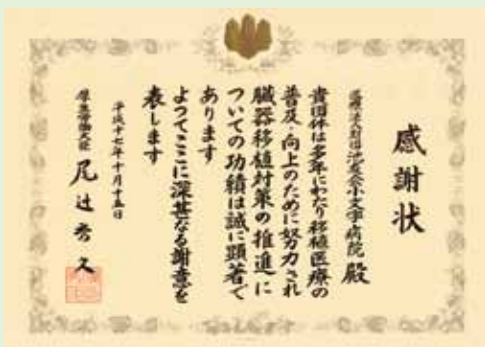 感謝状
医療法人財団池友会小文字病院 殿
貴団体は多年にわたり移植医療の
普及・向上のために努力され
臓器移植対策の推進に
ついての功績は誠に顕著で
あります
よってここに深甚なる謝意を
表します
平成十七年十月十五日
厚生労働大臣 尾辻秀久